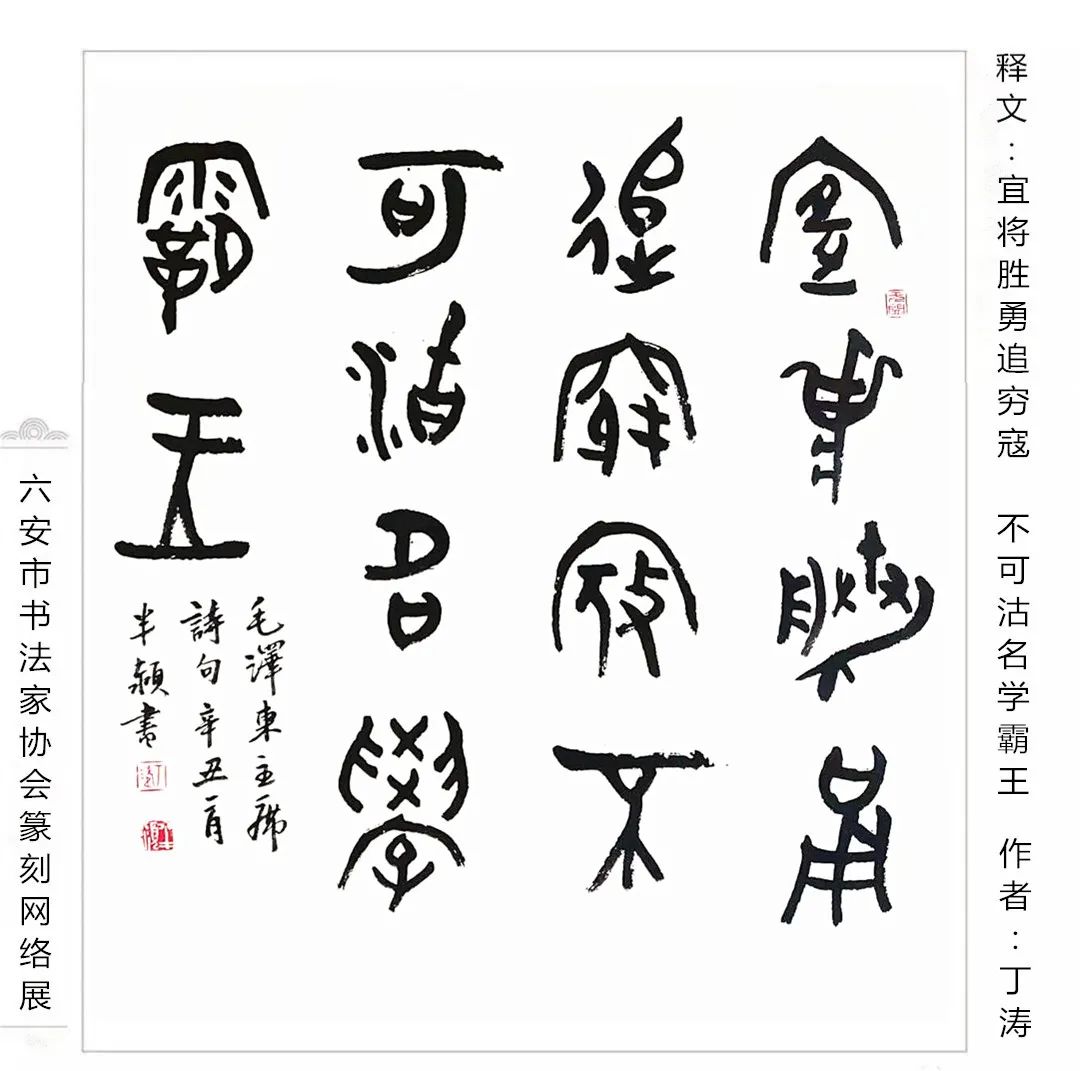 释文：宜将胜勇追穷寇　不可沽名学霸王　作者：丁涛
宜将勝勇
追窮寇不
可沽名學
霸王
毛澤東主席
詩句辛丑一月
半穎書
六安市书法家协会篆刻网络展